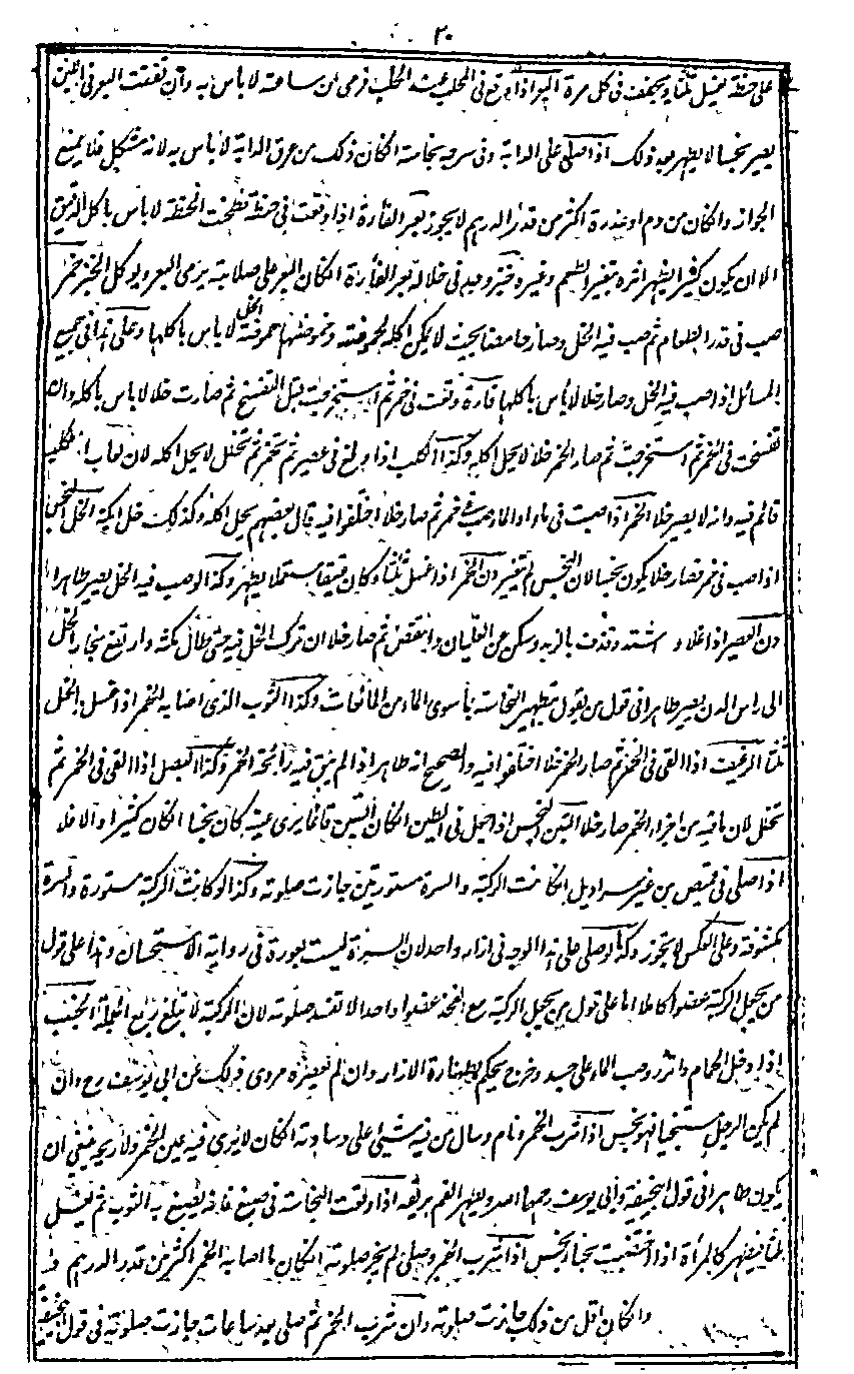 ٢٠
على حنطة تغسل ثلثا وتجفف فى كل مرة البعر اذا وقع فى المحلب عند الحلب فرمى من ساعته لا باس به وان تفتتت البعر فى اللبن
يصير نجسا لا يطهر بعد ذلك اذا صلى على الدابة وفى سرجه نجاسة انكان ذلك من عرق الدابة لا باس به لانه مشكل فلا يمنع
الجواز وانكان من دم او عذرة اكثر من قدر الدرهم لا يجوز بعر الفارة اذا وقعت فى حنطة فطحنت الحنطة لا باس باكل الدقيق
الا ان يكون كثيرا يظهر اثره بتغير الطعم وغيره خبز وجد فى خلاله بعر الفارة انكان البعر على صلابته يرمى البعر ويوكل الخبز خمر
صب فى قدر الطعام ثم صب فيه الخل وصار حامضا بحيث لا يمكن اكله لحموضته وحموضتها حموضة الخل لا باس باكلها وعلى هذا فى جميع
المسائل اذا صب فيه الخل وصار خلا لا باس باكلها فارة وقعت فى خمر ثم استخرجت قبل التفسخ ثم صارت خلا لا باس باكله وان
تفسخت فى الخمر ثم استخرجت ثم صار الخمر خلا لا يحل اكله وكذا الكلب اذا ولغ فى عصير ثم تخمر ثم تخلل لا يحل اكله لان لعاب الكلب
قائم فيه وانه لا يصير خلا الخمر اذا صبت فى ماء او الماء صب فى خمر ثم صار خلا اختلفوا فيه قال بعضهم يحل اكله وكذلك خل الخل النجس
اذا صب فى خمر فصار خلا يكون نجسا لان النجس لم يتغير دن الخمر اذا غسل ثلثا وكان عتيقا مستعملا يطهر وكذا لو صب فيه الخل يصير طاهرا
دن العصير اذا غلا واشتد وقذف بالزبد وسكن عن الغليان وانتقص ثم صار خلا ان ترك الخل فيه حتى طال مكثه وارتفع بخار الخل
الى راس الدن يصير طاهرا فى قول من يقول تطهير النجاسة بما سوى الماء من المائعات وكذا الثوب الذى اصابه الخمر اذا غسل بالخل
ثلثا الرغيف اذا القى فى الخمر ثم صار الخمر خلا اختلفوا فيه والصحيح انه طاهر اذا لم يبق فيه رائحة الخمر وكذا البصل اذا القى فى الخمر ثم
تخلل لان ما فيه من اجزاء الخمر صار خلا التبن النجس اذا جعل فى الطين انكان التبن قائما يرى عينه كان نجسا انكان كثيرا والا فلا
اذا صلى فى قميص من غير سراويل انكانت الركبة والسرة مستورتين جازت صلوته وكذا لو كانت الركبة مستورة والسرة
مكشوفة وعلى العكس لا يجوز وكذا لو صلى على هذا الوجه فى ازار واحد لان السرة ليست بعورة فى رواية الاستحسان وهذا على قول
من يجعل الركبة عضوا كاملا اما على قول من يجعل الركبة مع الفخذ عضوا واحدا لا تفسد صلوته لان الركبة لا تبلغ ربع الجملة الجنب
اذا دخل الحمام واتزر وصب الماء على جسده وخرج يحكم بطهارة الازار وان لم يعصره مروى ذلك عن ابى يوسف رح وان
لم يكن الرجل مستنجيا فهو نجس اذا شرب الخمر ونام وسال من فيه شيئ على وسادته انكان لا يرى فيه عين الخمر ولا ريحه ينبغى ان
يكون طاهرا فى قول ابيحنيفة وابى يوسف رحمهما الله ويطهر الفم بريقه اذا وقعت النجاسة فى صبغ فانه يصبغ به الثوب ثم يغسل
ثلثا فيطهر كالمرأة اذا اختضبت بحناء نجس اذا شرب الخمر وصلى لم يجز صلوته انكان ما اصابه الخمر اكثر من قدر الدرهم
وانكان اقل من ذلك جازت صلوته وان شرب الخمر ثم صلى بعد ساعات جازت صلوته فى قول ابيحنيفة